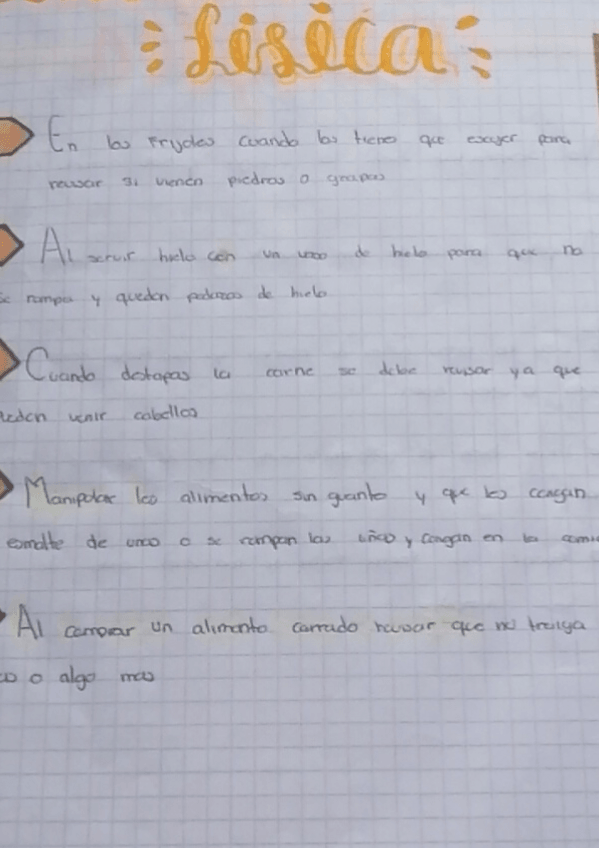 física
En los frijoles cuando los tiene que escojer para
revisar si vienen piedras o grapas
Al servir hielo con un vaso de hielo para que no
se rompa y queden pedazos de hielo
Cuando destapas la carne se debe revisar ya que
pueden venir cabellos
Manipular los alimentos sin guante y que les caigan
esmalte de uñas o se rompan las uñas y caigan en la
Al comprar un alimento cerrado revisar que no traiga
o algo mas